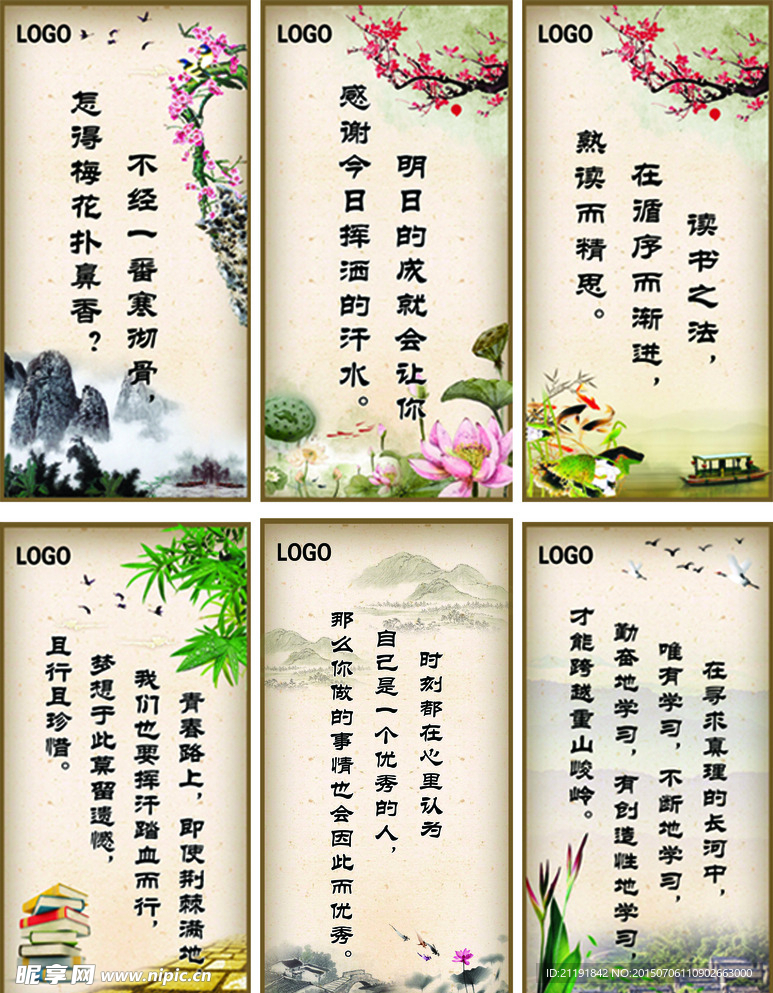 LOGO
不经一番寒彻骨，
怎得梅花扑鼻香？
LOGO
明日的成就会让你
感谢今日挥洒的汗水。
LOGO
读书之法，
在循序而渐进，
熟读而精思。
LOGO
青春路上，即使荆棘满地
我们也要挥汗踏血而行，
梦想于此莫留遗憾，
且行且珍惜。
LOGO
时刻都在心里认为
自己是一个优秀的人，
那么你做的事情也会因此而优秀。
LOGO
在寻求真理的长河中，
唯有学习，不断地学习，
勤奋地学习，有创造性地学习，
才能跨越重山峻岭。
昵享网 www.nipic.cn
ID:21191842 NO:20150706110902663000